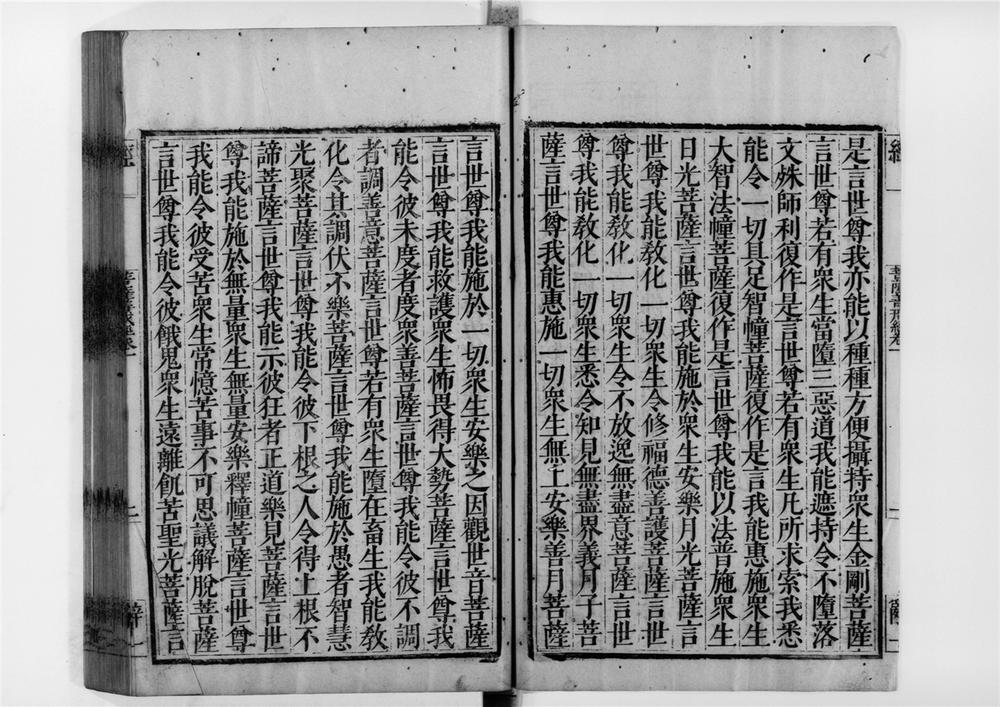 是言世尊我亦能以種種方便攝持衆生金剛菩薩
言世尊若有衆生當墮三惡道我能遮持令不墮落
文殊師利復作是言世尊若有衆生凡所求索我悉
能令一切具足智幢菩薩復作是言我能惠施衆生
大智法幢菩薩復作是言世尊我能以法普施衆生
日光菩薩言世尊我能施於衆生安樂月光菩薩言
世尊我能敎化一切衆生令修福德善護菩薩言世
尊我能敎化一切衆生令不放逸無盡意菩薩言世
尊我能敎化一切衆生悉令知見無盡界義月子菩
薩言世尊我能惠施一切衆生無上安樂善月菩薩
言世尊我能施於一切衆生安樂之因觀世音菩薩
言世尊我能救護衆生怖畏得大勢菩薩言世尊我
能令彼未度者度衆善菩薩言世尊我能令彼不調
者調善意菩薩言世尊若有衆生墮在畜生我能敎
化令其調伏不樂菩薩言世尊我能施於愚者智慧
光聚菩薩言世尊我能令彼下根之人令得上根不
諦菩薩言世尊我能示彼狂者正道樂見菩薩言世
尊我能施於無量衆生無量安樂釋幢菩薩言世尊
我能令彼受苦衆生常憶苦事不可思議解脫菩薩
言世尊我能令彼餓鬼衆生遠離飢苦聖光菩薩言